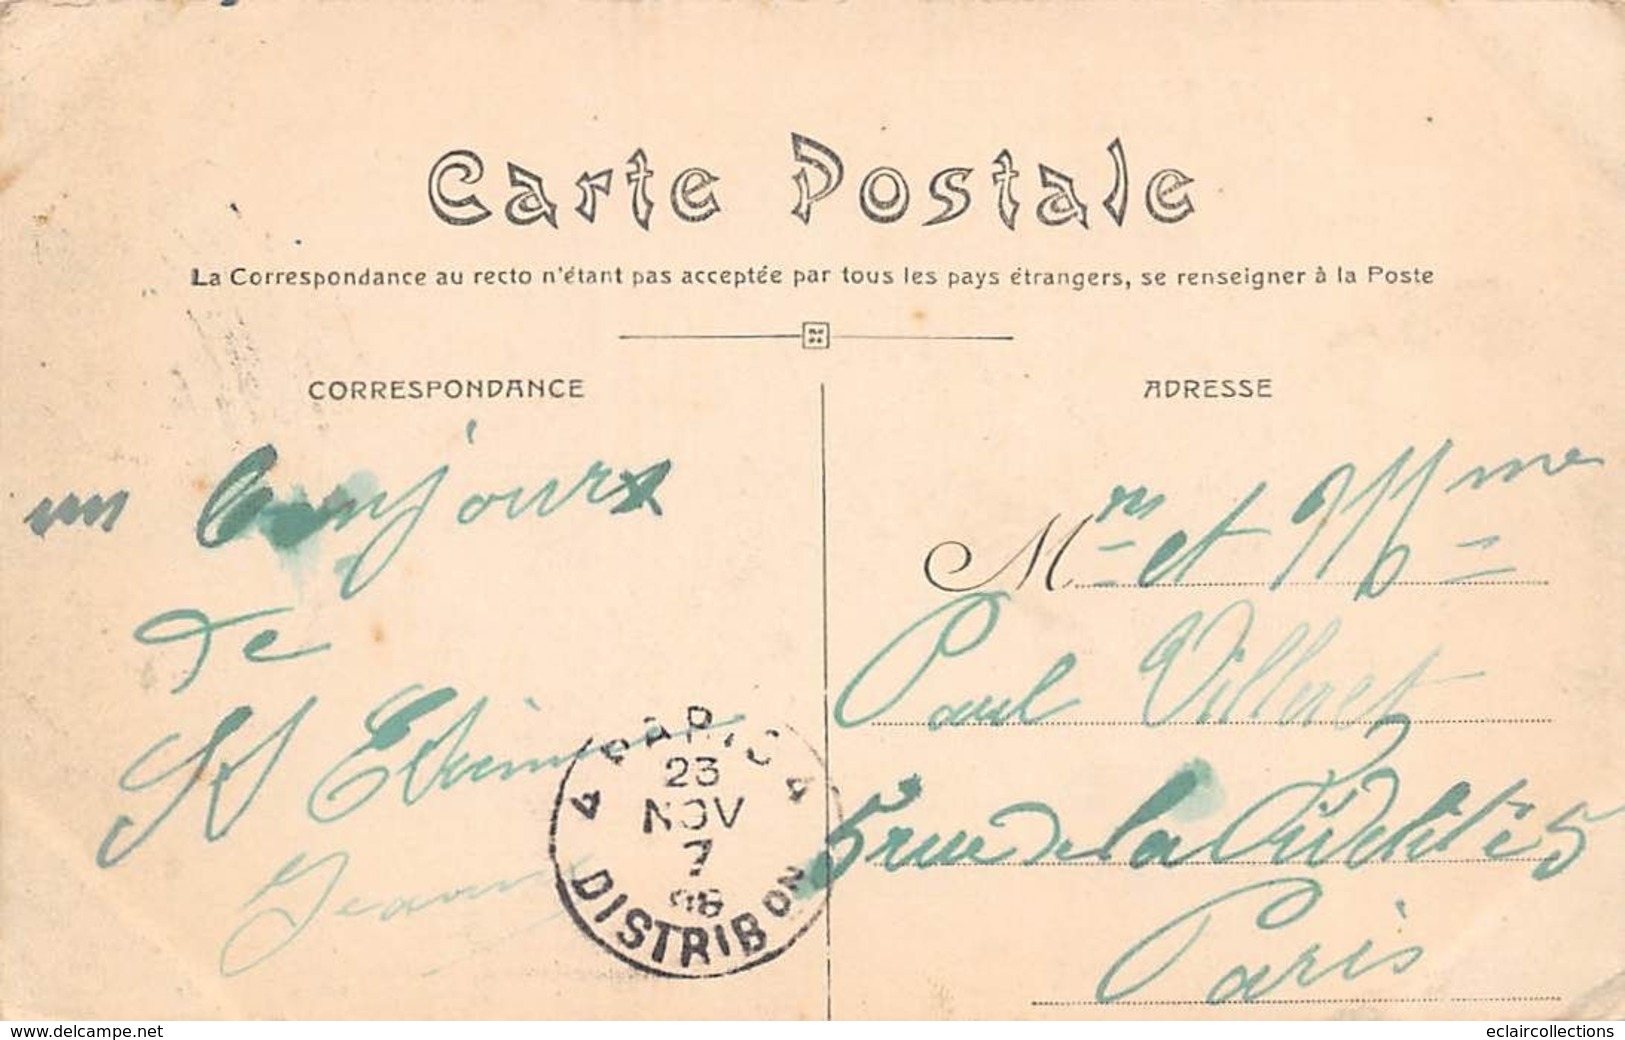 Carte Postale
La Correspondance au recto n'étant pas acceptée par tous les pays étrangers, se renseigner à la Poste
CORRESPONDANCE
un bonjour
de
St Etienne
Jeanne
PARIS 4
23
NOV
7
08
DISTRIBON
ADRESSE
Mr et Mme
Paul Villeret
5 rue de la Fidélité 5
Paris
www.delcampe.net
eclaircollections